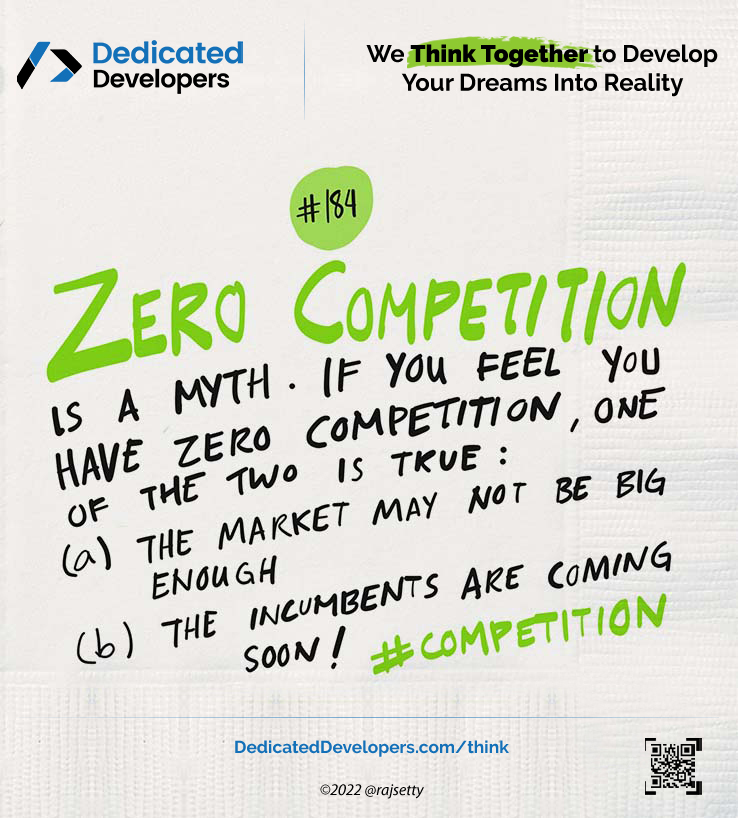 Dedicated
Developers
We Think Together to Develop
Your Dreams Into Reality
#184
ZERO COMPETITION
IS A MYTH. IF YOU FEEL YOU
HAVE ZERO COMPETITION, ONE
OF THE TWO IS TRUE:
(a) THE MARKET MAY NOT BE BIG
ENOUGH
(b) THE INCUMBENTS ARE COMING
SOON! #COMPETITION
DedicatedDevelopers.com/think
©2022 @rajsetty